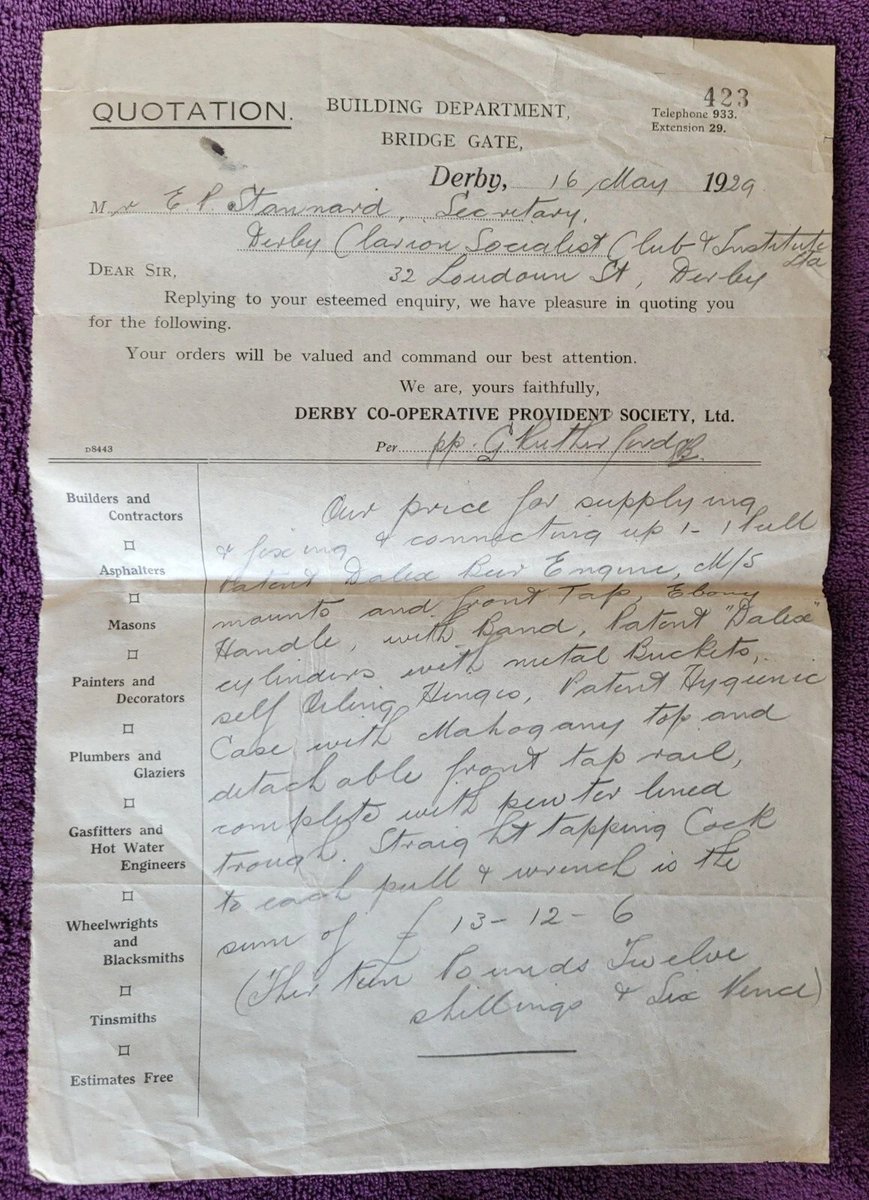 423
QUOTATION. BUILDING DEPARTMENT, Telephone 933.
BRIDGE GATE, Extension 29.
Derby, 16 May 1929
Mr E P. Stannard, Secretary,
Derby Clarion Socialist Club & Institute Ltd
DEAR SIR, 32 Loudoun St, Derby
Replying to your esteemed enquiry, we have pleasure in quoting you
for the following.
Your orders will be valued and command our best attention.
We are, yours faithfully,
DERBY CO-OPERATIVE PROVIDENT SOCIETY, Ltd.
D8443 Per pp. G Rutherford
Builders and
Contractors
Asphalters
Masons
Painters and
Decorators
Plumbers and
Glaziers
Gasfitters and
Hot Water
Engineers
Wheelwrights
and
Blacksmiths
Tinsmiths
Estimates Free
Our price for supplying
& fixing & connecting up 1- 1 Pull
Patent Dalex Beer Engine, M/S
mounts and front Tap, Ebony
Handle, with Band, Patent "Dalex"
cylinders with metal Buckets,
self Oiling Hinges, Patent Hygienic
Case with Mahogany top and
detachable front tap rail,
complete with pewter lined
trough. Straight tapping Cock
to each pull & wrench is the
sum of £ 13-12-6
(Thirteen Pounds Twelve
shillings & Six Pence)